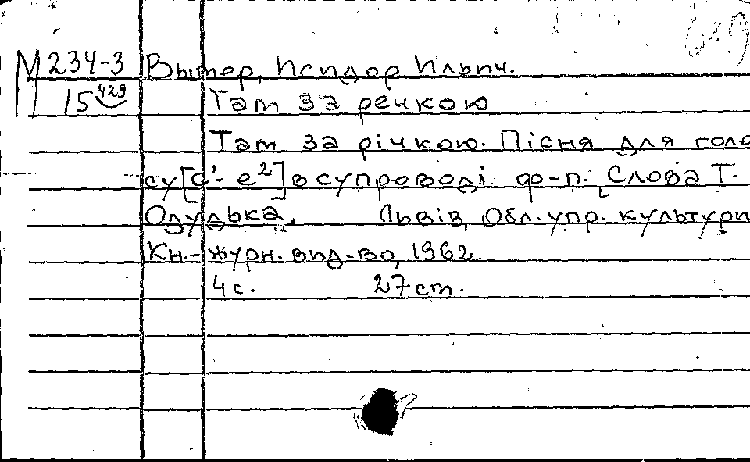 М 234-3 Вымер, Исидор Ильич.
15 429 Там за речкою
Там за річкою. Пісня для голо
су [c¹-e²] в супроводі ф-п. Слова Т.
Одудька. Львів, Обл. упр. культури
Кн.-журн. вид-во, 1962
4 с. 27 cm.